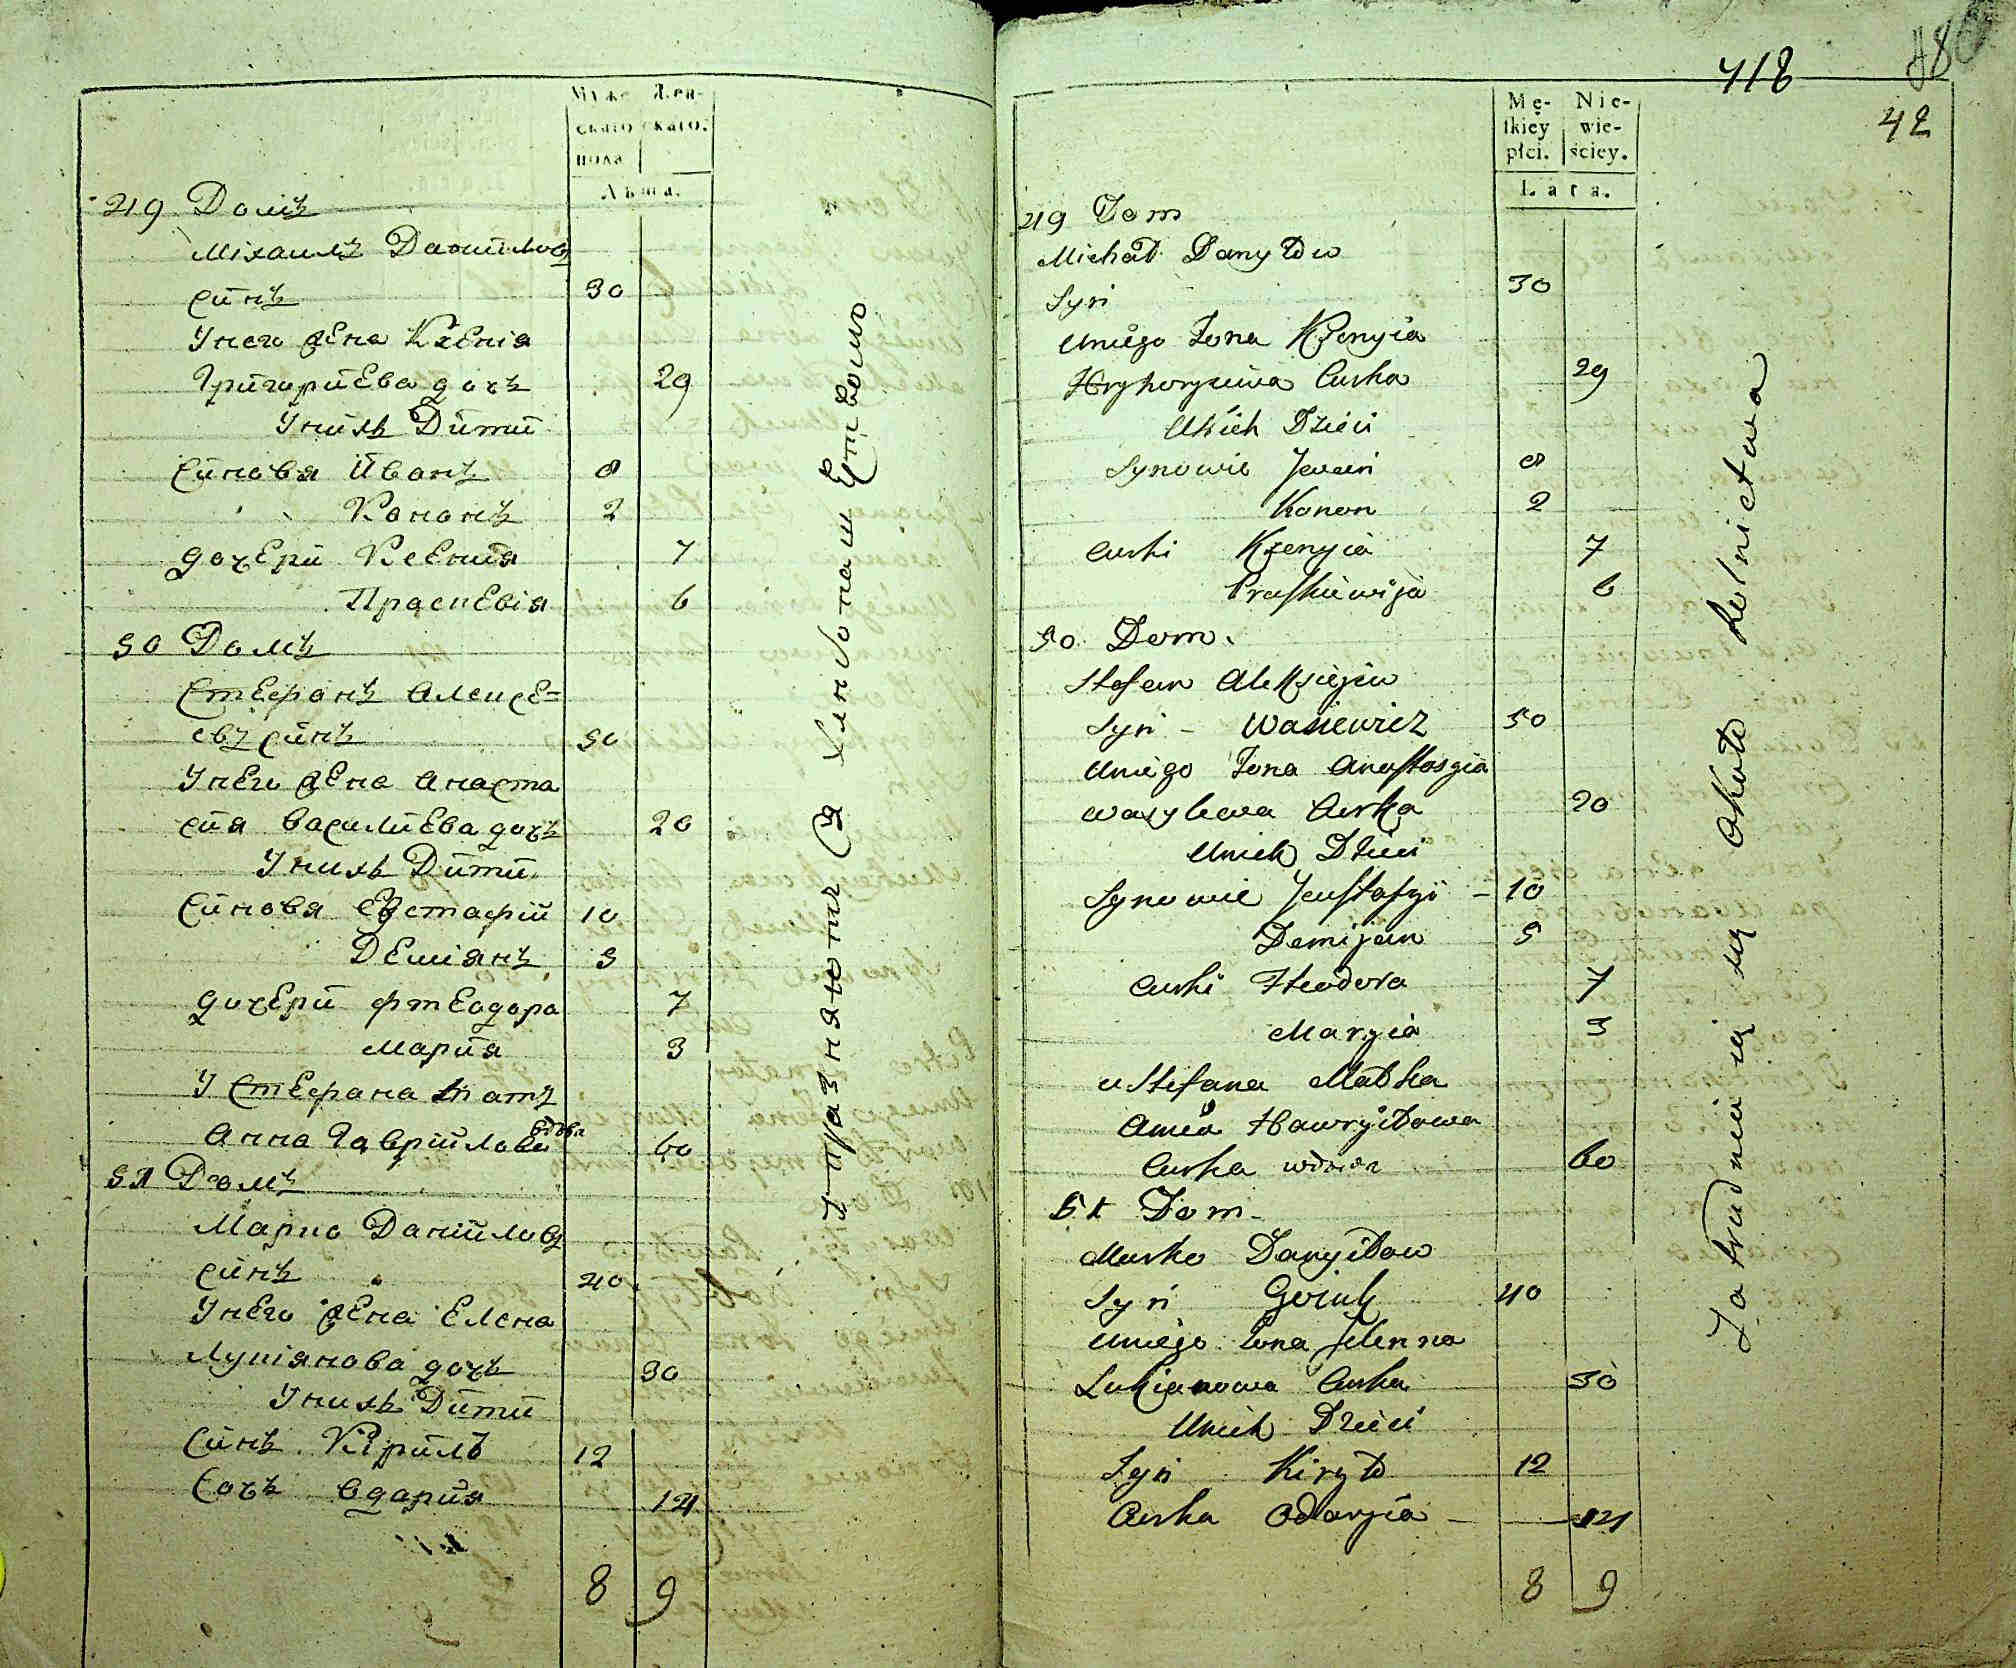 Муже Жен-
скаго скаго.
пола
Лѣта.
49 Домъ
Міхаилъ Данйловъ
сйнъ 30
Унего жена Ксенія
Григорйева дочъ 29
Унйхъ Дйтй
сйновя Йванъ 8
Кононъ 2
дочерй Ксенйя 7
Праскевія 6
50 Домъ
Стефанъ Алексе=
евъ сйнъ 50
Унего жена Анаста
сйя Васильйева дочъ 20
Унихъ Дйтй
Сйновя Евстафій 10
Деміянъ 5
дочерй Фтеодора 7
Марйя 3
У Стефана Мать
Анна Гаврйлова вдова 60
51 Домъ
Марко Данййловъ
сйнъ 40
Унего жена Елена
Лукіянова дочъ 30
Унихъ Дйтй
Сйнъ Кірйлъ 12
Дочъ Одарйя 14
8 9
Упражняются Хлебопашеством
418
42
Mę-
skiey
płci.
Nie-
wie-
ściey.
Lata.
49 Dom
Michał Danyłow
Syn 30
Uniego Żona Kseniya
Hryhoryiewa Curka 29
Unich Dzieci
Synowie Jwan 8
Konon 2
Curki Kseniya 7
Praskiewija 6
50 Dom.
Stefan Aleksiejew
Syn - Wasiewicz 50
Uniego Żona Anastasyia
Wasylewa Curka 20
Unich Dzieci
Synowie Jewstafyi - 10
Demijan 5
Curki Fteodora 7
Maryia 3
u Stefana Matka
Anna Hawryłowa
Curka wdowa 60
51 Dom
Marko Danyiłow
Syn 40
Uniego Żona Jelenna
Lukianowa Curka 30
Unich Dzieci
Syn Kiryło 12
Curka Odaryia 14
8 9
Zatrudniaią się Około Rolnictwa